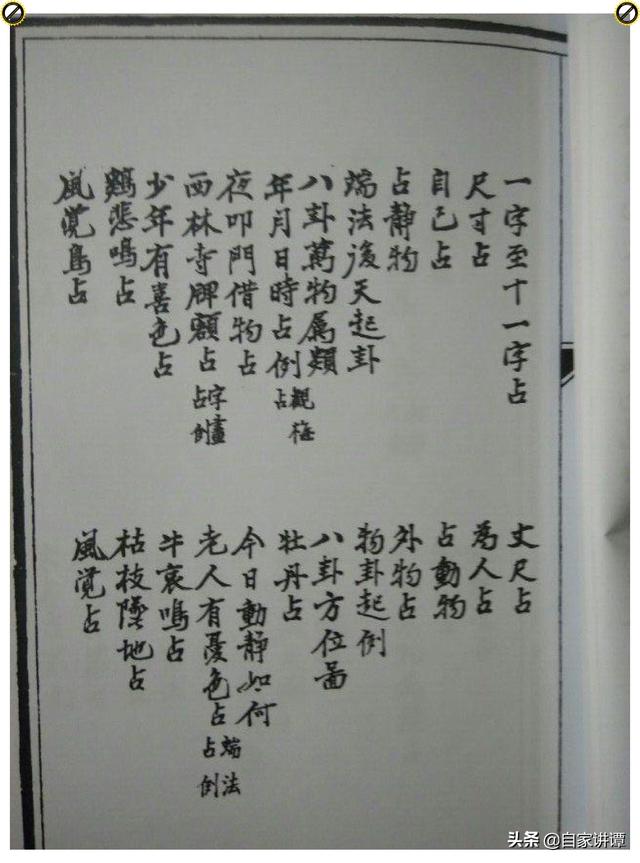 一字至十一字占
丈尺占
尺寸占
為人占
自己占
占動物
占静物
外物占
端法後天起卦
物卦起例
八卦萬物属類
八卦方位圖
年月日時占例 觀梅占
牡丹占
夜叩門借物占
今日動静如何
西林寺牌額占 字畫占例
老人有憂色占 端法占例
少年有喜色占
牛哀鳴占
鷄悲鳴占
枯枝墜地占
風覺鳥占
風覺占
头条 @自家讲谭